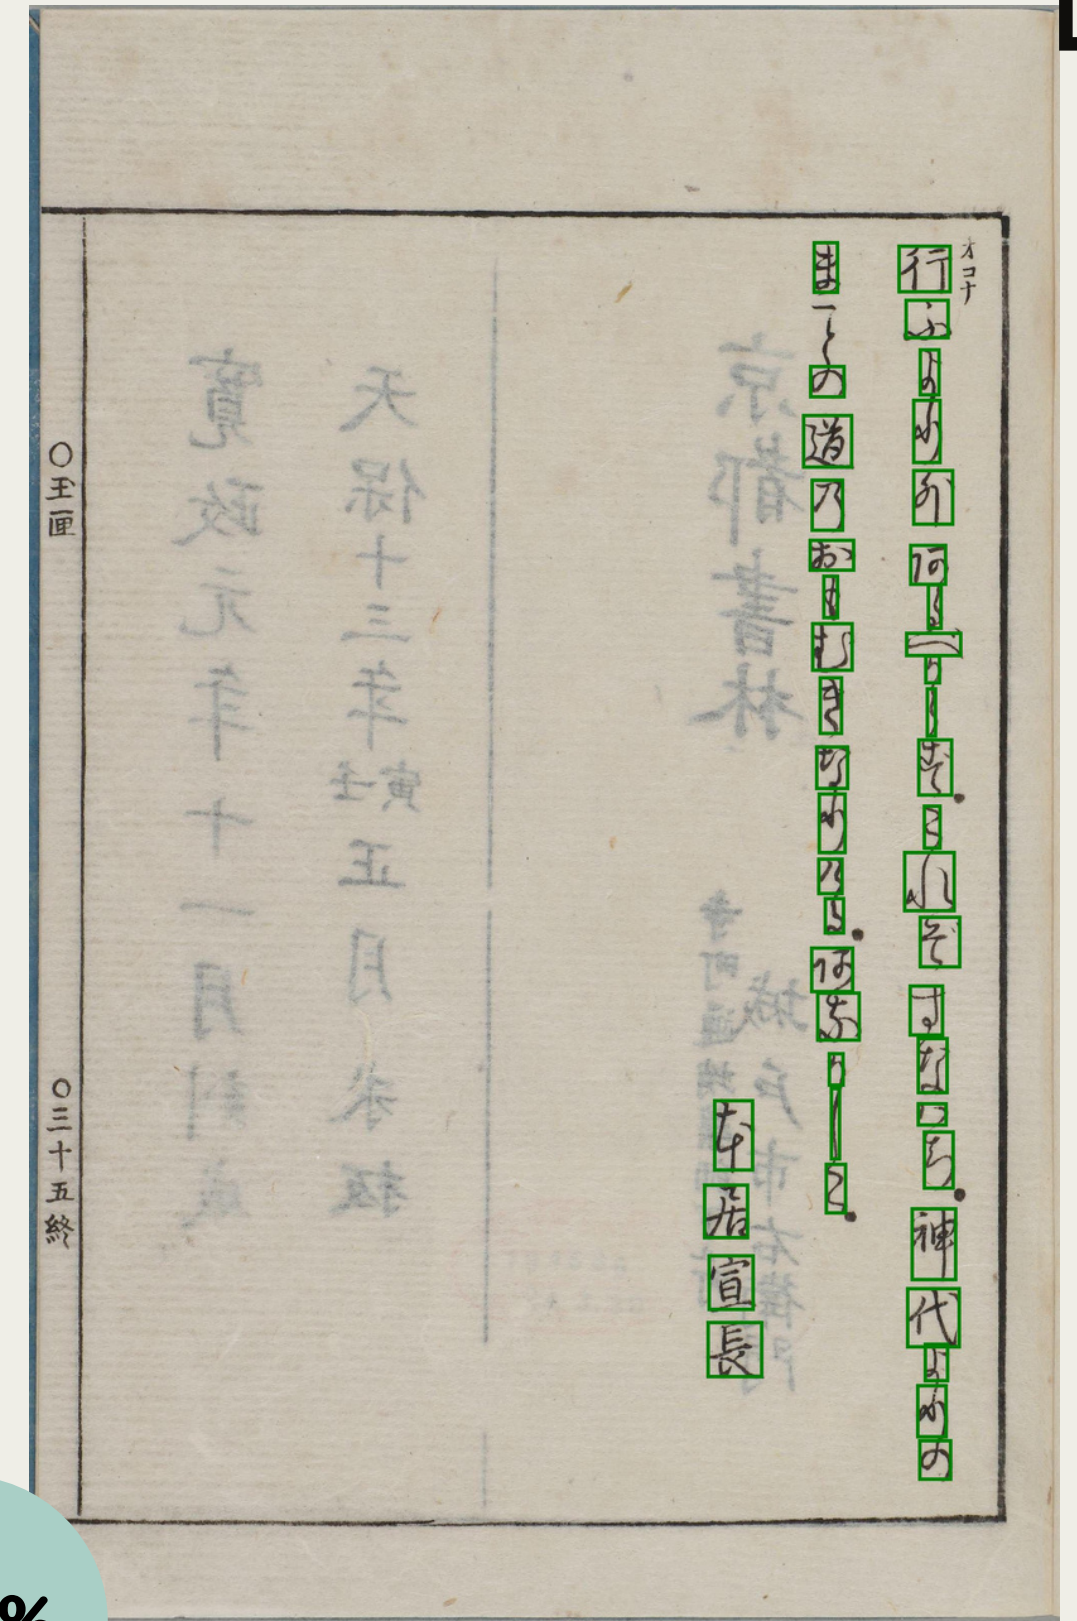 オコナ
行ふより外あるべからず。これぞすなはち。神代よりの
まことの道のおもむきなりける。あなかしこ。
本居宣長
〇玉匣
〇三十五終
%